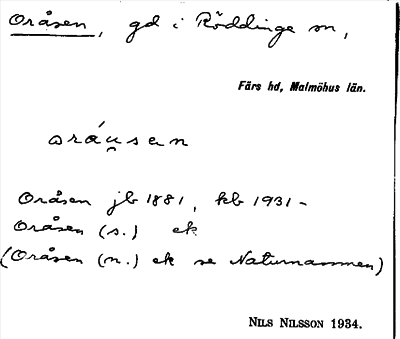 Oråsen, gd i Röddinge sn,
Färs hd, Malmöhus län.
oráu̯sen
Oråsen jb 1881, kb 1931 –
Oråsen (s.) ek
(Oråsen (n.) ek se Naturnamnen)
NILS NILSSON 1934.